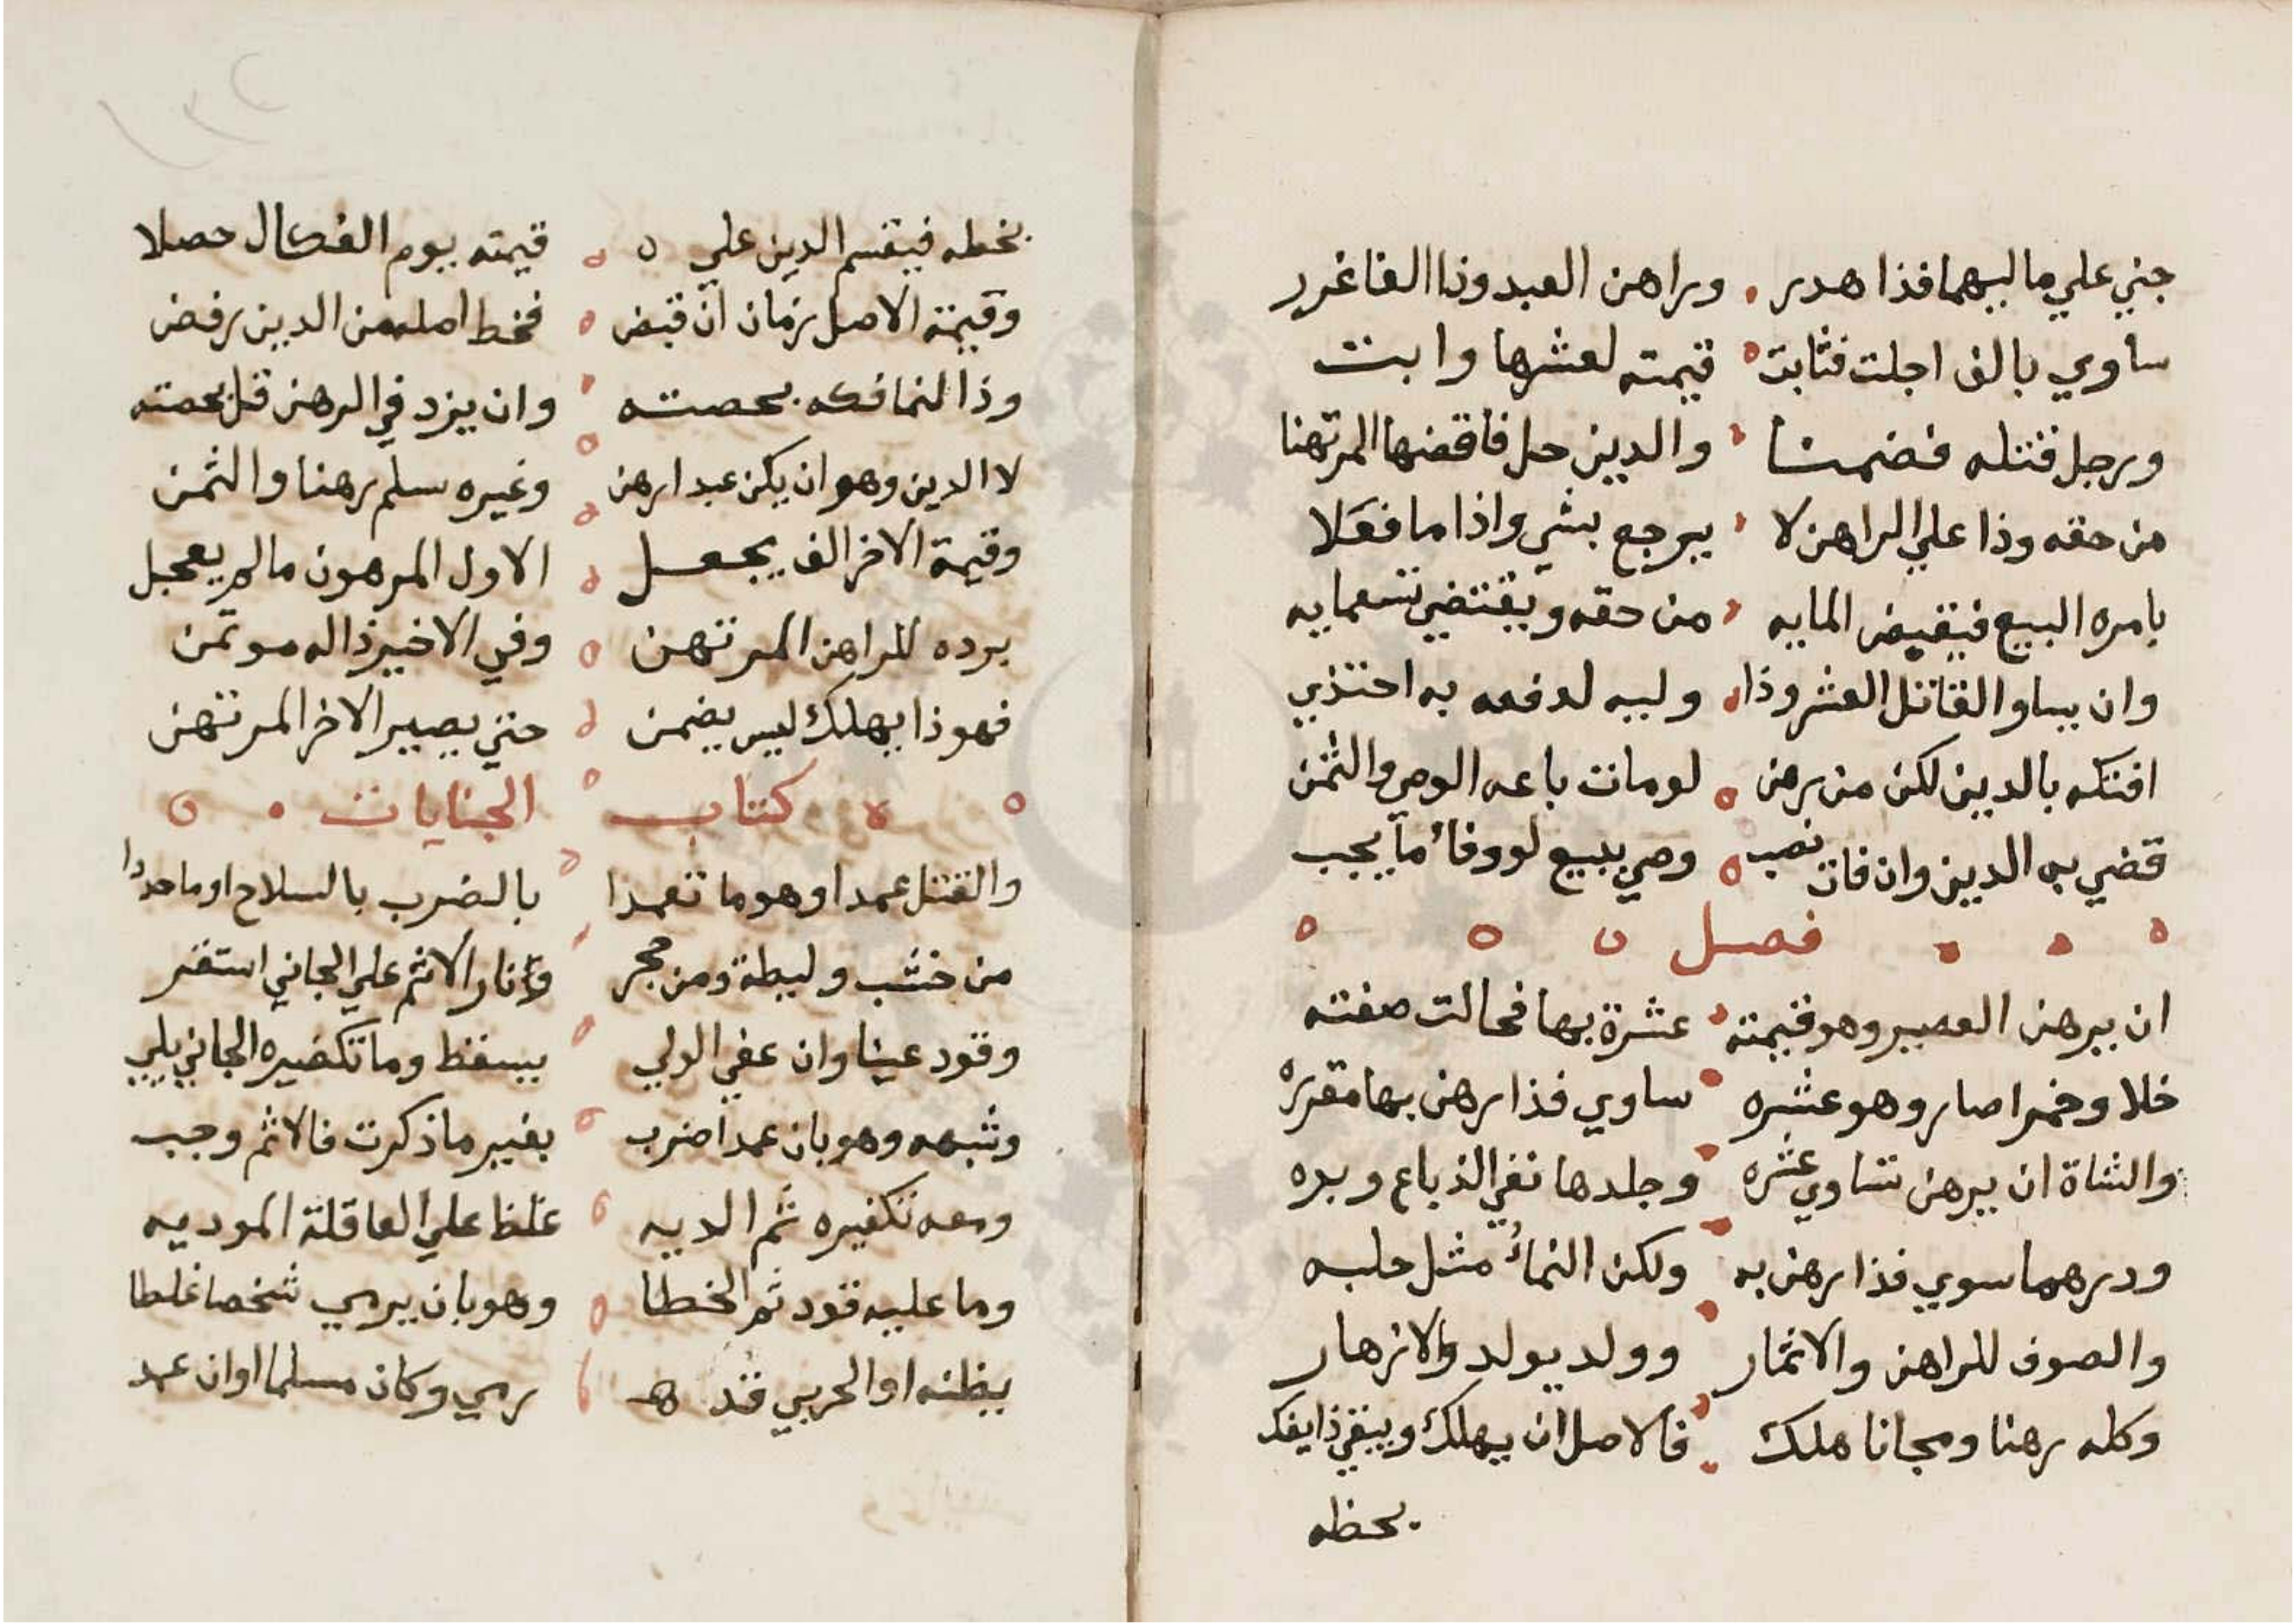 جني علي ماليهما فذا هدر وراهن العبد وذا الفا غرر
ساوي بالف اجلت فثابت قيمته لعشرها وابت
ورجل قتله فضمنا والدين حل فاقضها المرتهنا
من حقه وذا علي الراهن لا يرجع بشي واذا ما فعلا
بامره البيع فيقبض المايه من حقه ويقتضي تسعمايه
وان يساو القاتل العشر وذا وليه لدفعه به احتذي
افتكه بالدين لكن من رهن لو مات باعه الوصي والثمن
قضي به الدين وان فات نصب وصي يبيع لو وفاء ما يجب
فصل
ان يرهن العصير وهو قيمته عشرة بها فحالت صفته
خلا وخمرا صار وهو عشره ساوي فذا رهن بها مقرره
والشاة ان يرهن تساوي عشره وجلدها نفي الدباغ وبره
ودرهما سوي فذا رهن به ولكن النماء مثل حلبه
والصوف للراهن والاثمار وولد يولد والازهار
وكله رهنا ومجانا هلك فالاصل ان يهلك ويبقي ذا يفك
بحظه
بخطه فيقسم الدين علي قيمته يوم الفكاك حصلا
وقيمة الاصل زمان ان قبض فخط اصله من الدين رفض
وذا لنما فكه بحصته وان يزد في الرهن قل بحصته
لا الدين وهو ان يكن عبدا رهن وغيره سلم رهنا والثمن
وقيمة الاخر الف يجعل الاول المرهون ما لم يعجل
برده للراهن المرتهن وفي الاخير ذا له موتمن
فهو ذا يهلك ليس يضمن حتي يصير الاخر المرتهن
كتاب الجنايات
والقتل عمدا وهو ما تعمدا بالضرب بالسلاح او ما حددا
من خشب وليطة ومن حجر ونار الاثم علي الجاني استقر
وقود عينا وان عفي الولي يسقط وما تكفيره الجاني يلي
وشبهه وهو بان عمدا ضرب بغير ما ذكرت فالاثم وجب
ومعه تكفيره ثم الديه غلظا علي العاقلة الموديه
وما عليه قود ثم الخطا وهو بان يرمي شخصا غلطا
يظنه او الحربي قد رمي وكان مسلما او ان عمد